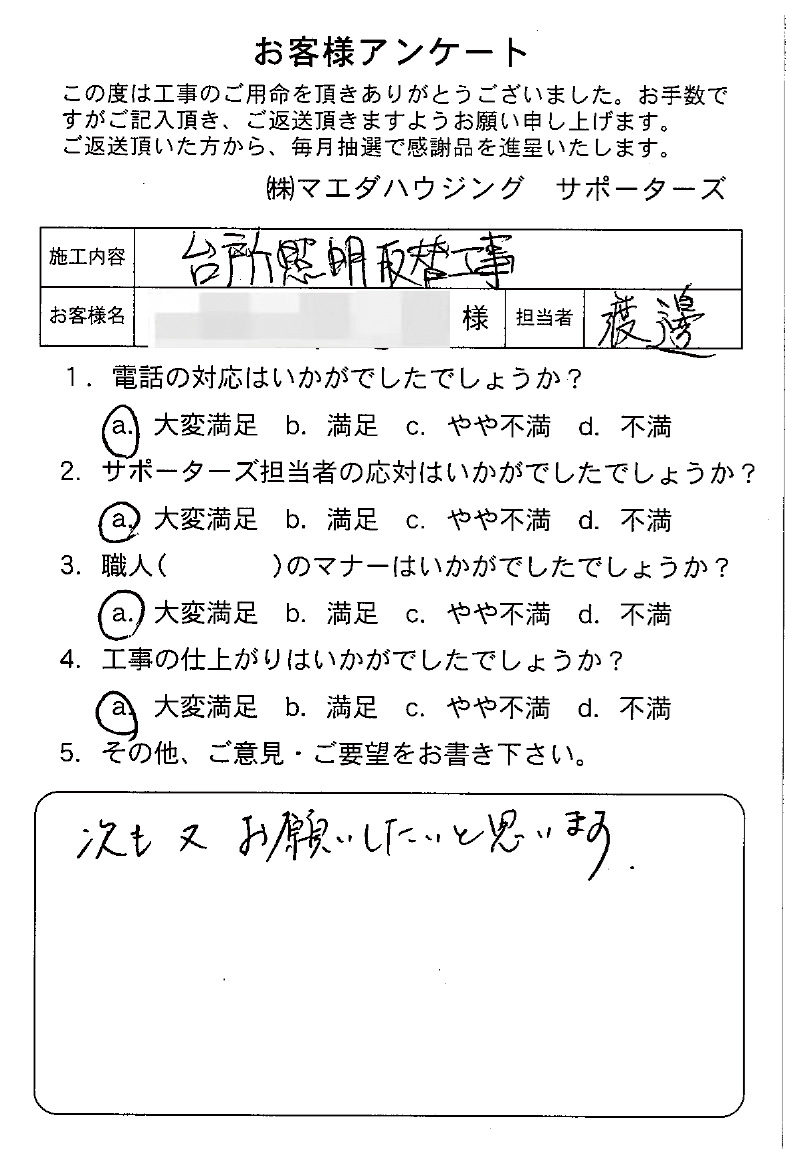 お客様アンケート
この度は工事のご用命を頂きありがとうございました。お手数で
すがご記入頂き、ご返送頂きますようお願い申し上げます。
ご返送頂いた方から、毎月抽選で感謝品を進呈いたします。
㈱マエダハウジング サポーターズ
施工内容 台所照明取替工事
お客様名 様 担当者 渡邊
1. 電話の対応はいかがでしたでしょうか?
a. 大変満足 b. 満足 c. やや不満 d. 不満
2. サポーターズ担当者の応対はいかがでしたでしょうか?
a. 大変満足 b. 満足 c. やや不満 d. 不満
3. 職人( )のマナーはいかがでしたでしょうか?
a. 大変満足 b. 満足 c. やや不満 d. 不満
4. 工事の仕上がりはいかがでしたでしょうか?
a. 大変満足 b. 満足 c. やや不満 d. 不満
5. その他、ご意見・ご要望をお書き下さい。
次も又お願いしたいと思います.